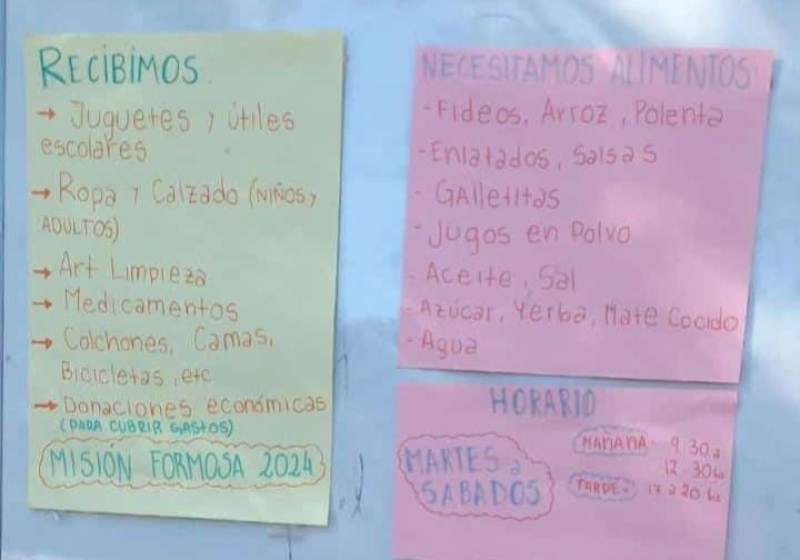 RECIBIMOS
→ Juguetes y útiles
escolares
→ Ropa y Calzado (NIÑOS y
ADULTOS)
→ Art Limpieza
→ Medicamentos
→ Colchones, Camas,
Bicicletas, etc
→ Donaciones económicas
(PARA CUBRIR GASTOS)
MISIÓN FORMOSA 2024
NECESITAMOS ALIMENTOS
- Fideos, Arroz, Polenta
- Enlatados, Salsas
- GAlletitas
- Jugos en Polvo
- Aceite, Sal
- Azúcar, Yerba, Mate Cocido
- Agua
HORARIO
MARTES a
SABADOS
MAÑANA- 9 30 a
12 30 hs
TARDE- 17 a 20 hs